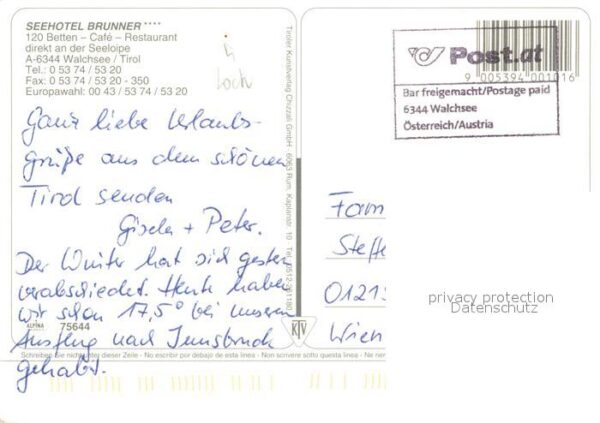 SEEHOTEL BRUNNER ****
120 Betten – Café – Restaurant
direkt an der Seeloipe
A-6344 Walchsee / Tirol
Tel.: 0 53 74 / 53 20
Fax: 0 53 74 / 53 20 - 350
Europawahl: 00 43 / 53 74 / 53 20
Ganz liebe Urlaubs-
grüße aus dem schönen
Tirol senden
Gisela + Peter.
Der Winter hat sich gestern
verabschiedet. Heute haben
wir schon 17,5° bei unserem
Ausflug nach Innsbruck
gehabt.
ALPINA
75644
Schreiben Sie nicht unter dieser Zeile - No escribir por debajo de esta linea - Non scrivere sotto questa linea - Ne
Tiroler Kunstverlag Chizzali GmbH · 6063 Rum, Kaplanstr. 10 · Tel.
KTV
Post.at
9 005394 001016
Bar freigemacht/Postage paid
6344 Walchsee
Österreich/Austria
Fam
Steffe
Wien
privacy protection
Datenschutz